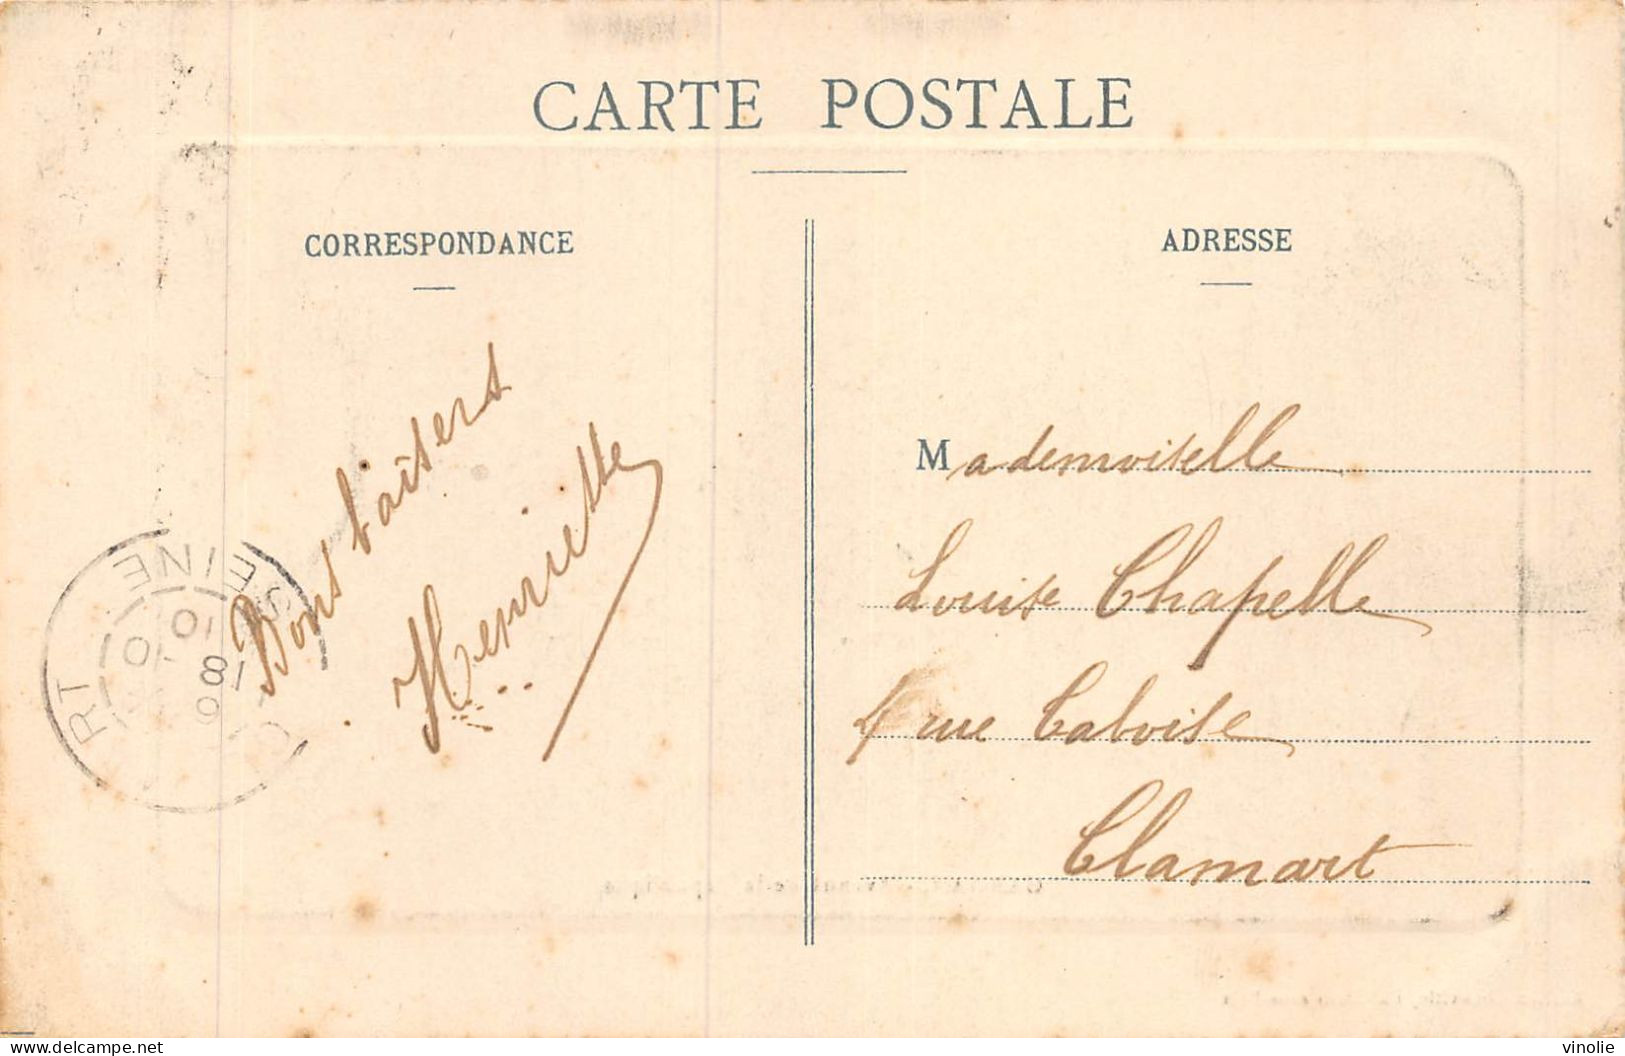 CARTE POSTALE
CORRESPONDANCE
Bons baisers
Henriette
SEINE
ADRESSE
Mademoiselle
Louise Chapelle
4 rue
Clamart
www.delcampe.net
vinolie